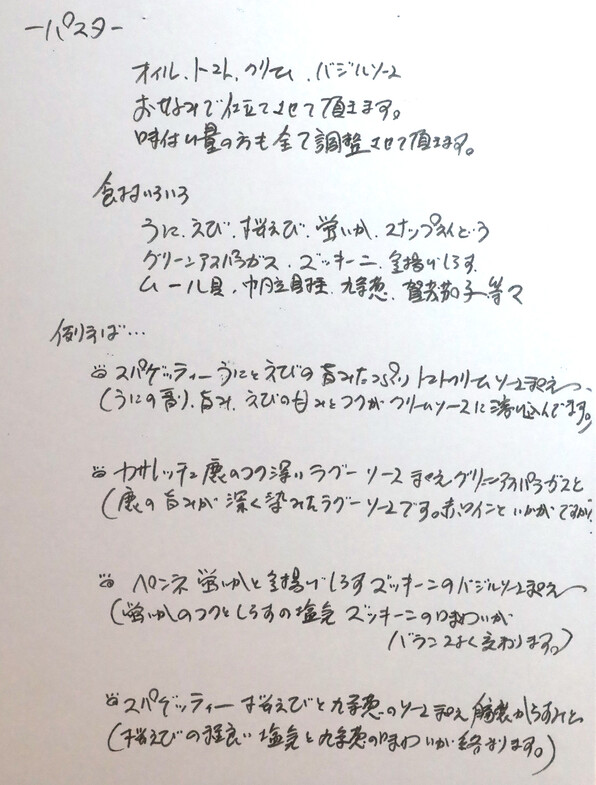 ーパスター
オイル、トマト、クリーム、バジルソース
お好みで仕立てさせて頂きます。
味付け量の方も全て調整させて頂きます。
食材いろいろ
うに、えび、桜えび、蛍いか、スナップえんどう
グリーンアスパラガス、ズッキーニ、釜揚げしらす
ムール貝、帆立貝柱、九条葱、賀茂茄子等々
例えば…
スパゲッティー うにとえびの旨みたっぷり トマトクリームソースまぜ
(うにの香り、旨み、えびの甘みとコクがクリームソースに溶け込んでます。)
カサレッチェ 鹿のコク深いラグーソース まぜ グリーンアスパラガスと
(鹿の旨みが深く染みたラグーソースです。赤ワインといかがですか)
ペンネ 蛍いかと釜揚げしらす ズッキーニのバジルソース
(蛍いかのコクとしらすの塩気 ズッキーニの味わいが
バランスよく交わります。)
スパゲッティー 桜えびと九条葱のソース からすみと
(桜えびの程良い塩気と九条葱の味わいが絡まります。)